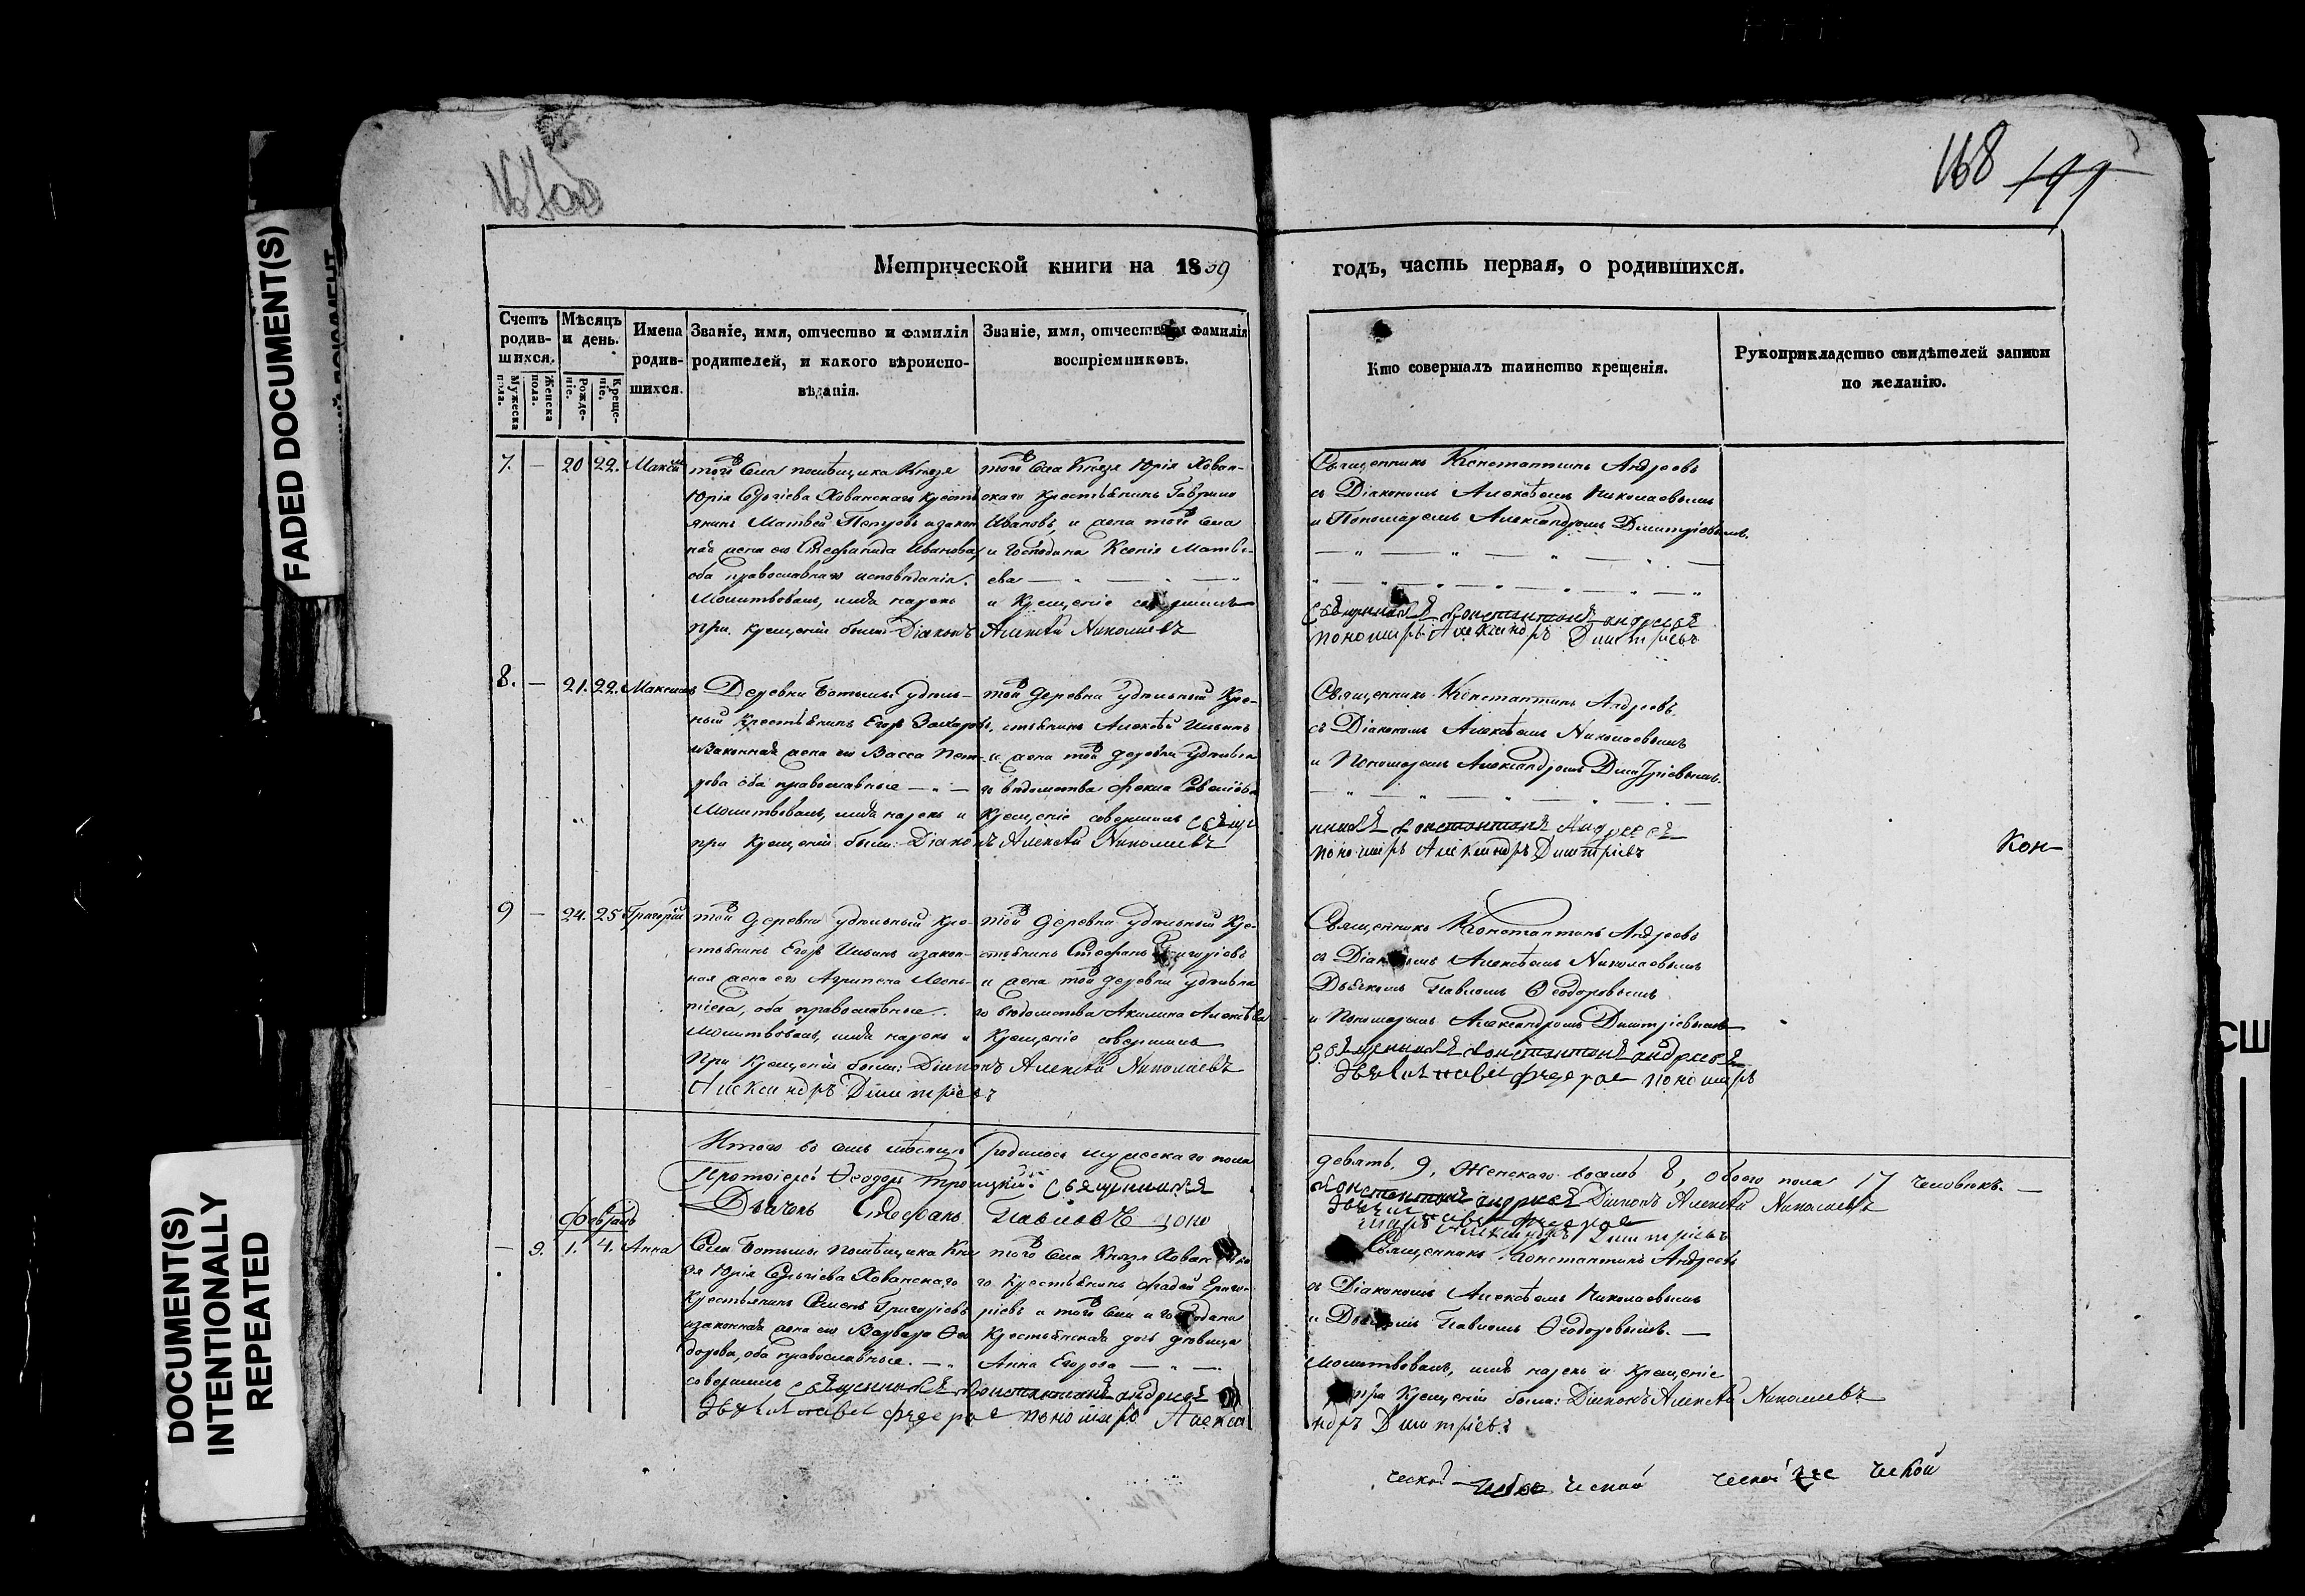 FADED DOCUMENT(S)
DOCUMENT(S)
INTENTIONALLY
REPEATED
168 199
Метрической книги на 1859 годъ, часть первая, о родившихся.
Счетъ родившихся.
Мужеска пола.
Женска пола.
Мѣсяцъ и день.
Рожденіе.
Крещеніе.
Имена родившихся.
Званіе, имя, отчество и фамилія родителей, и какого вѣроисповѣданія.
Званіе, имя, отчество и фамилія воспріемниковъ.
Кто совершалъ таинство крещенія.
Рукоприкладство свидѣтелей записи по желанію.
7. — 20 22. Максимъ
того Села помѣщика Князя
Юрія Сергіева Хованскаго крестья
янинъ Матвей Петровъ изакон
ная жена его Стефанида Иванова
оба православнаго исповѣданія.
Молитвовалъ, имя нарекъ
при крещеніи были: Діаконъ
того Села Князя Юрія Хован-
скаго крестьянинъ Гаврило
Ивановъ, и жена того Села
и Господина Ксенія Матвѣ-
ева
и Крещеніе совершилъ
Алексѣй Николаевъ
Священникъ Константинъ Андреевъ
съ Діакономъ Алексѣемъ Николаевымъ
и Пономаремъ Александромъ Димитріевымъ.
священникъ константинъ андреевъ
пономарь Александръ Димитріевъ
8. — 21. 22. Максимъ
Деревни Ботьмы удѣль-
ный крестьянинъ Егоръ Захаровъ,
изаконная жена его Васса Пет-
рова оба православные
Молитвовалъ, имя нарекъ и
при Крещеніи были: Діако
той деревни удѣльный Кре-
стьянинъ Алексѣй Ильинъ
и жена той деревни удѣльна
го вѣдомства Фекла Савельева
Крещеніе совершилъ свяще
нъ Алексѣй Николаевъ
Священникъ Константинъ Андреевъ
съ Діакономъ Алексѣемъ Николаевымъ
и Пономаремъ Александромъ Димитріевымъ.
нникъ константинъ Андреевъ
пономарь Александръ Димитріевъ
Кон-
9 — 24. 25 Григорій
той деревни удѣльный Кре-
стьянинъ Егоръ Ильинъ изакон-
ная жена его Агрипена Леонь-
тіева, оба православные.
Молитвовалъ, имя нарекъ и
При Крещеніи были: Діакон
Александръ Димитріевъ
той деревни удѣльный Кре-
стьянинъ Стефанъ Григорьевъ
и жена той деревни удѣльна
го вѣдомства Акилина Алексѣева
Крещеніе совершилъ
нъ Алексѣй Николаевъ
Священникъ Константинъ Андреевъ
съ Діакономъ Алексѣемъ Николаевымъ
Дьячкомъ Павломъ Ѳеодоровымъ
и Пономаремъ Александромъ Димитріевымъ
священникъ константинъ андреевъ
пономарь
Итого въ семъ мѣсяцѣ родилось мужескаго пола девять, 9, Женскаго восемь 8, обоего пола 17 человѣкъ.
Протоіерей Ѳеодоръ Троицкій. священникъ константинъ андреевъ Діаконъ Алексѣй Николаевъ
Дьячекъ Стефанъ Павловъ
Александръ Димитріевъ
Февраль
— 9. 1. 4. Анна
Села Ботьмы помѣщика Кня
зя Юрія Сергіева Хованскаго
Крестьянинъ Семенъ Григорьевъ
изаконная жена его Варвара Ѳео
дорова, оба православные.
совершилъ священникъ константинъ андреевъ
пономарь Алекса
того Села Князя Хованско
го Крестьянинъ Фадѣй Григо-
рьевъ и того Села и господина
Крестьянская дочь дѣвица
Анна Егорова
Священникъ Константинъ Андреевъ
съ Діакономъ Алексѣемъ Николаевымъ
и Дьячкомъ Павломъ Ѳеодоровымъ.
Молитвовалъ, имя нарекъ и крещеніе
при Крещеніи были: Діаконъ Алексѣй Николаевъ
ндръ Димитріевъ
ческой ческой ческой ческой